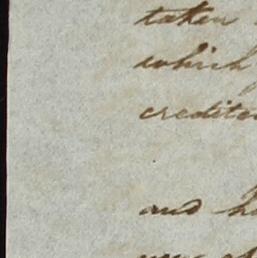 taken
which
credite
and h